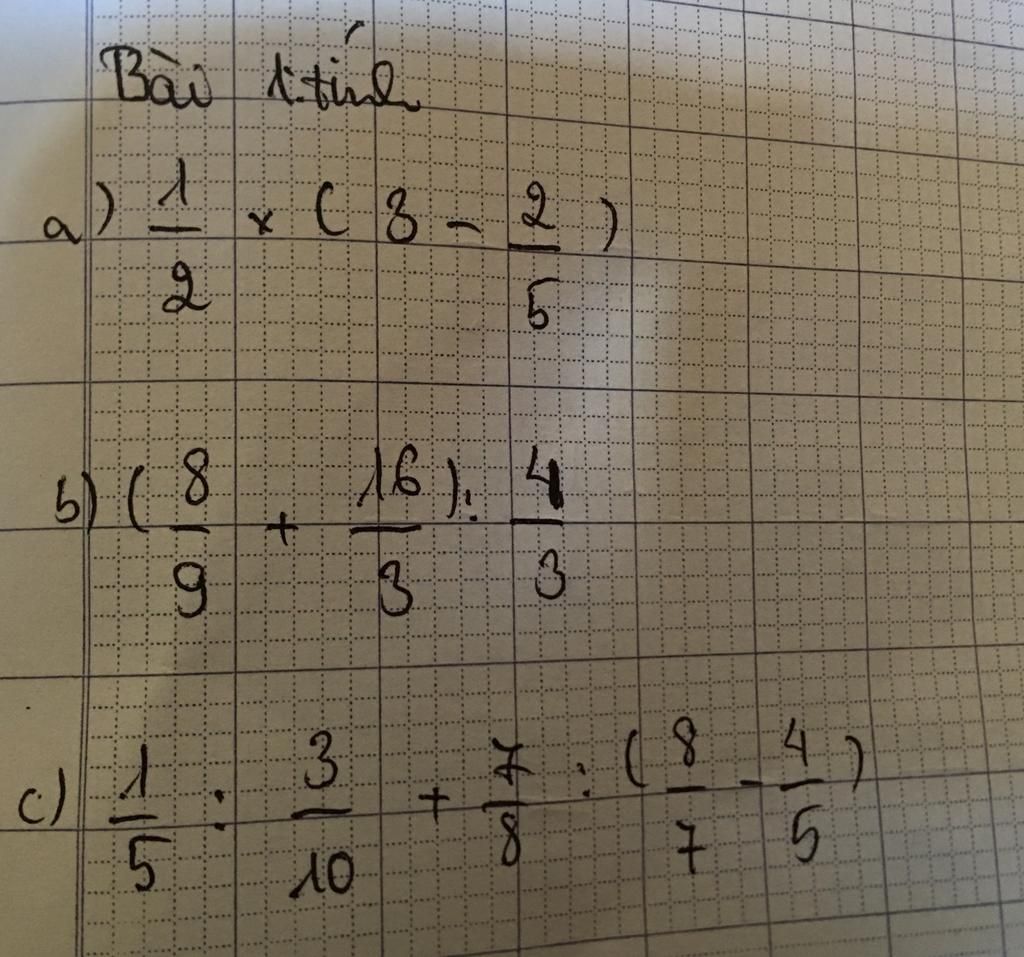 Bài 1: tính
a) 1/2 x ( 3 - 2/5 )
b) ( 8/9 + 16/3 ) : 4/3
c) 1/5 : 3/10 + 7/8 : ( 8/7 - 4/5 )